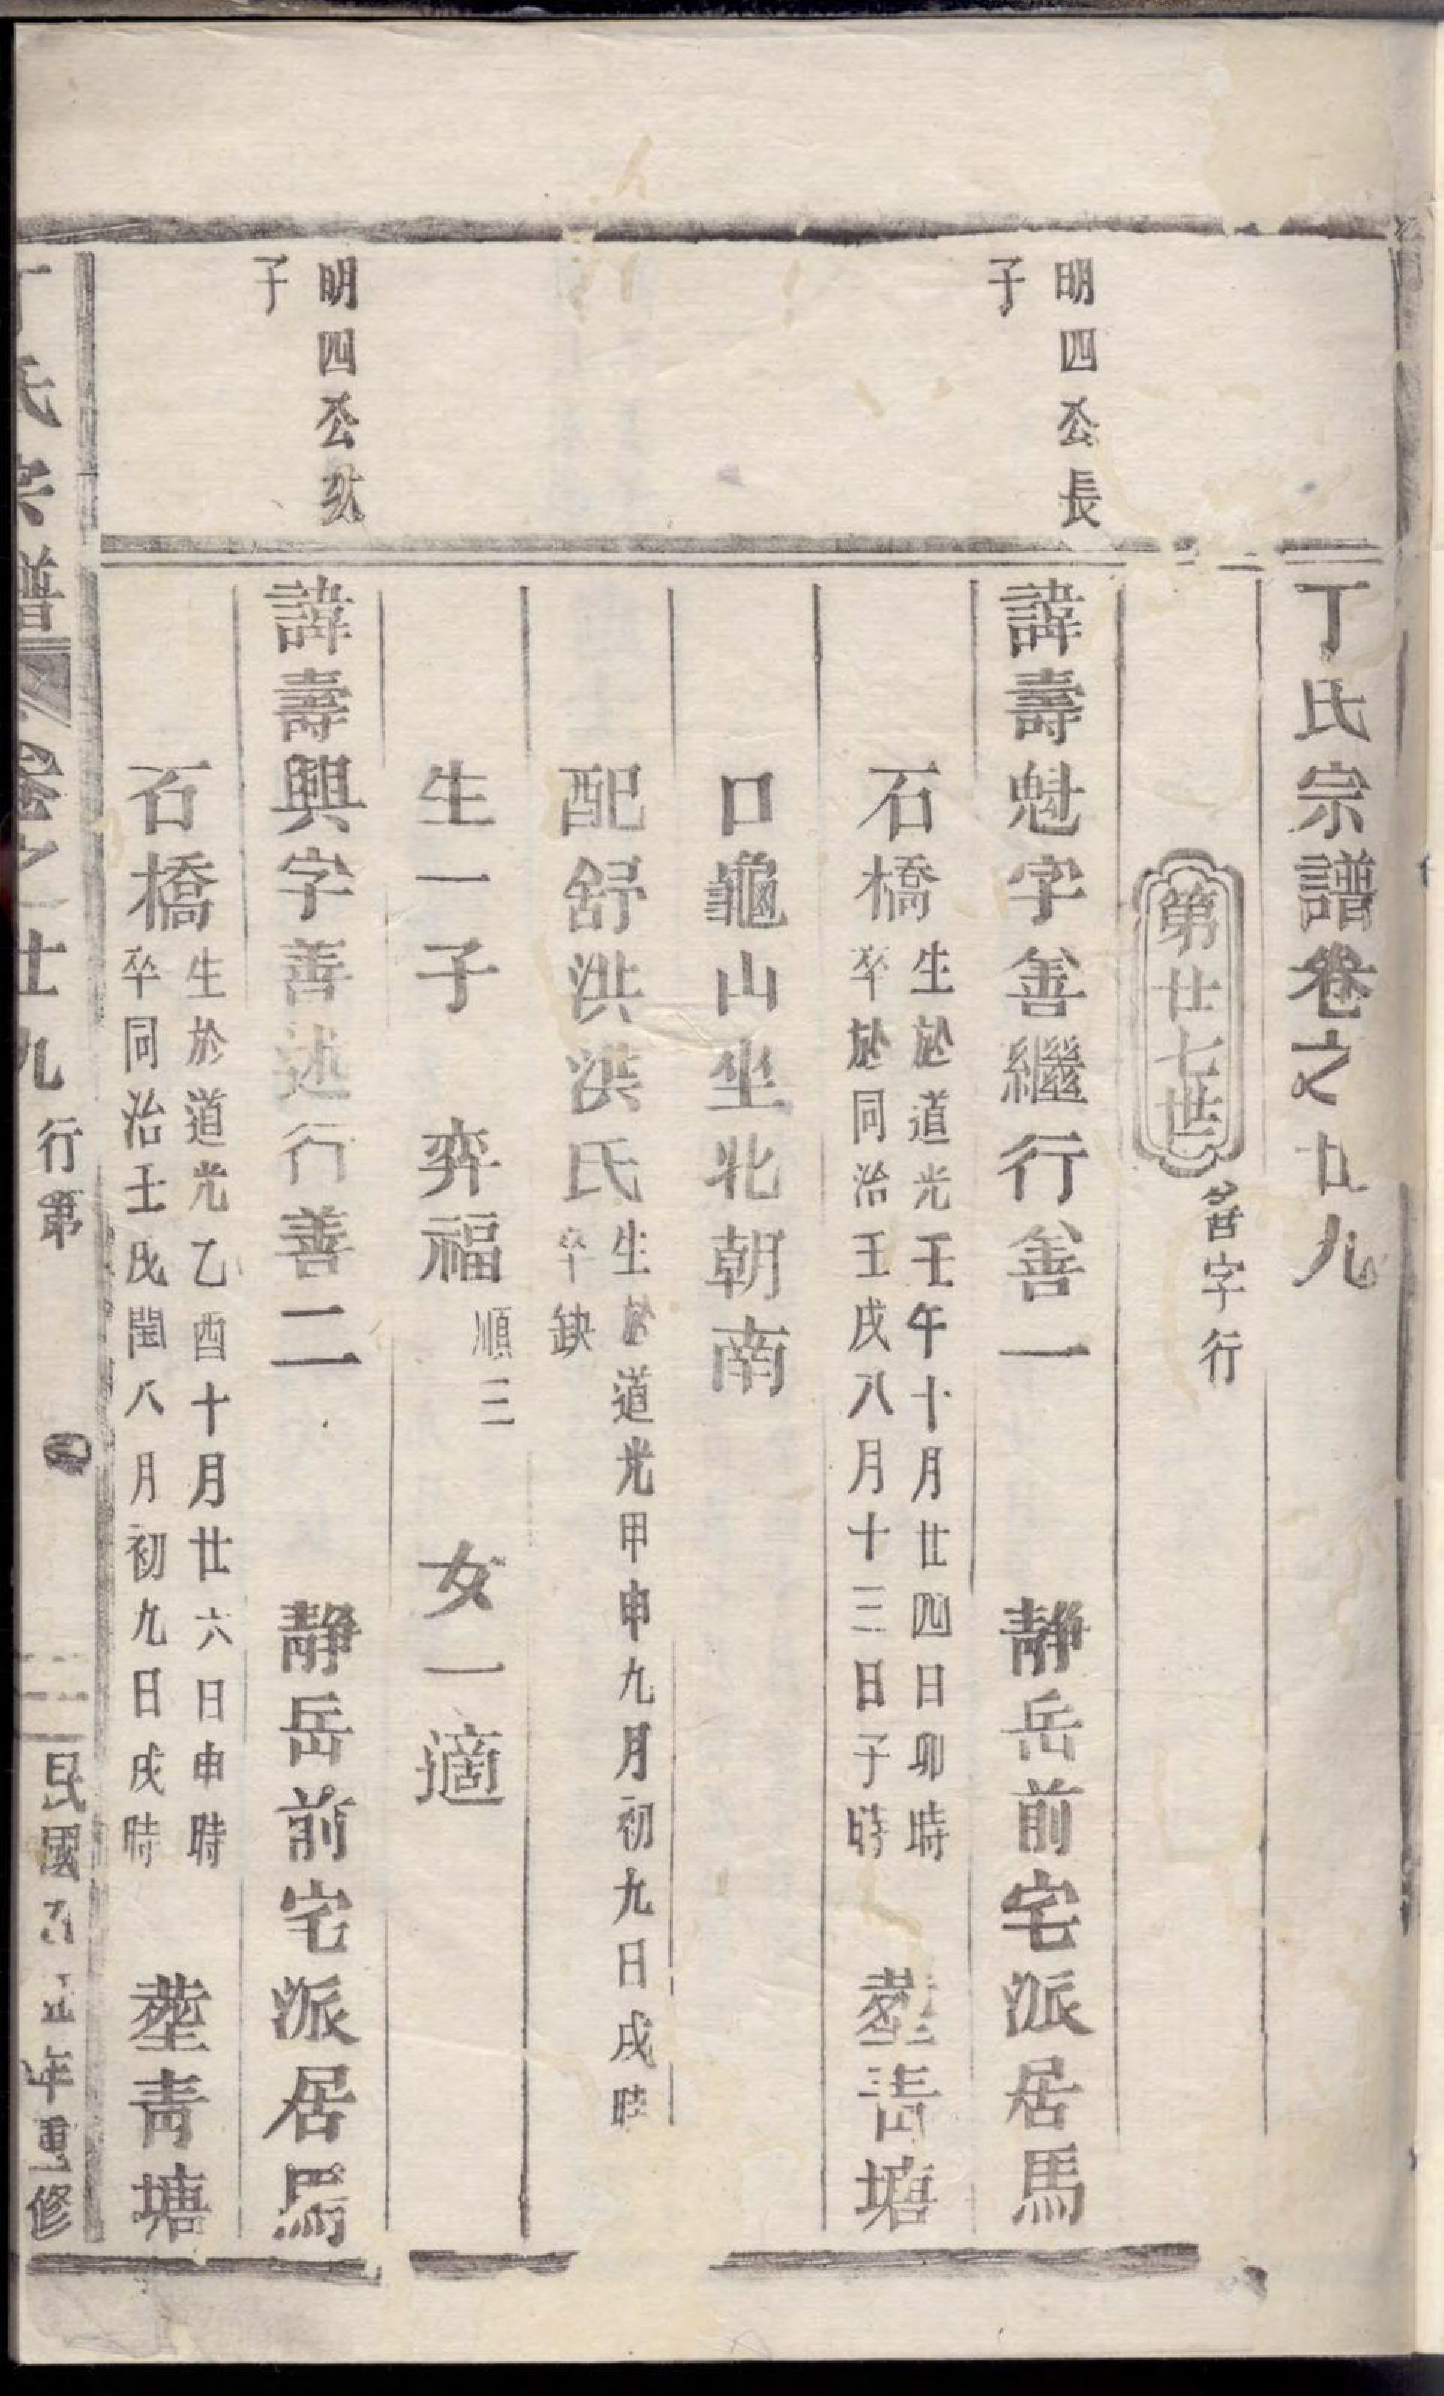 丁氏宗譜卷之廿九
第廿七世
善字行
明四公長
子
諱壽魁字善繼行善一 靜岳前宅派居馬
石橋
生於道光壬午十月廿四日卯時
卒於同治壬戌八月十三日子時
塟青塘
口龜山坐北朝南
配舒洪洪氏
生於道光甲申九月初九日戌時
卒缺
生一子 弈福
順三
女一適
明四公次
子
諱壽興字善述行善二 靜岳前宅派居馬
石橋
生於道光乙酉十月廿六日申時
卒同治壬戌閏八月初九日戌時
塟青塘
丁氏宗譜 卷之廿九 行第 一 民國 年重修